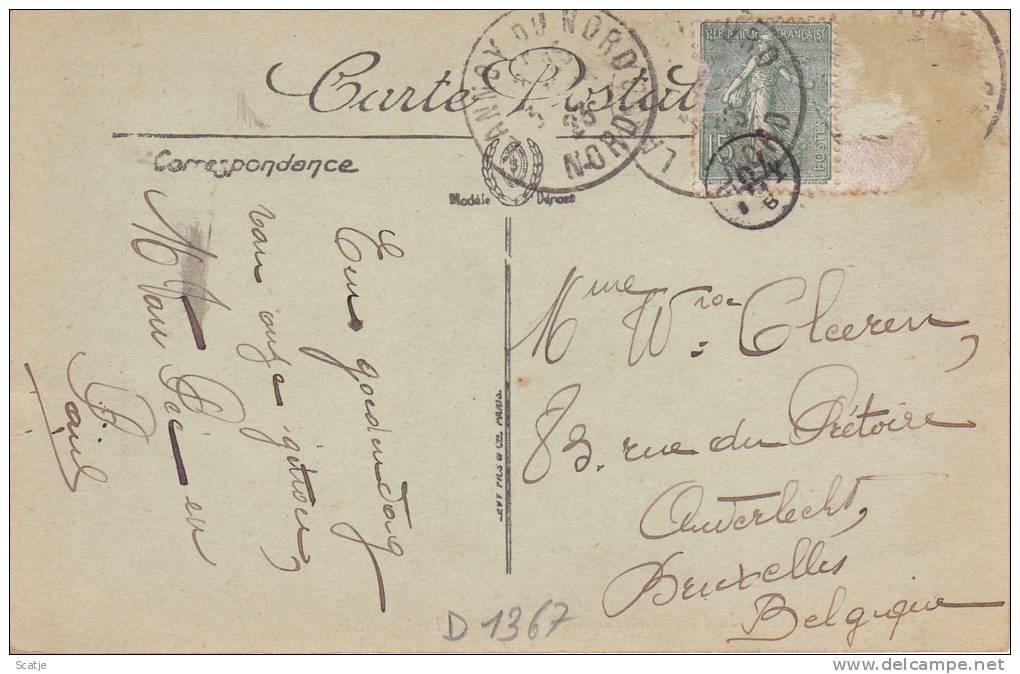 Carte Postale
LANNOY DU NORD
NORD
RÉPUBLIQUE FRANÇAISE
15
POSTES
Correspondance
Modèle Déposé
Een goeden dag
van onze
M Van en
Paul
LEVY FILS & Cie PARIS.
Mme Cleeren,
83. rue du Prétoire
Anderlecht,
Bruxelles
Belgique
D 1367
Scatje
http://www.delcampe.net